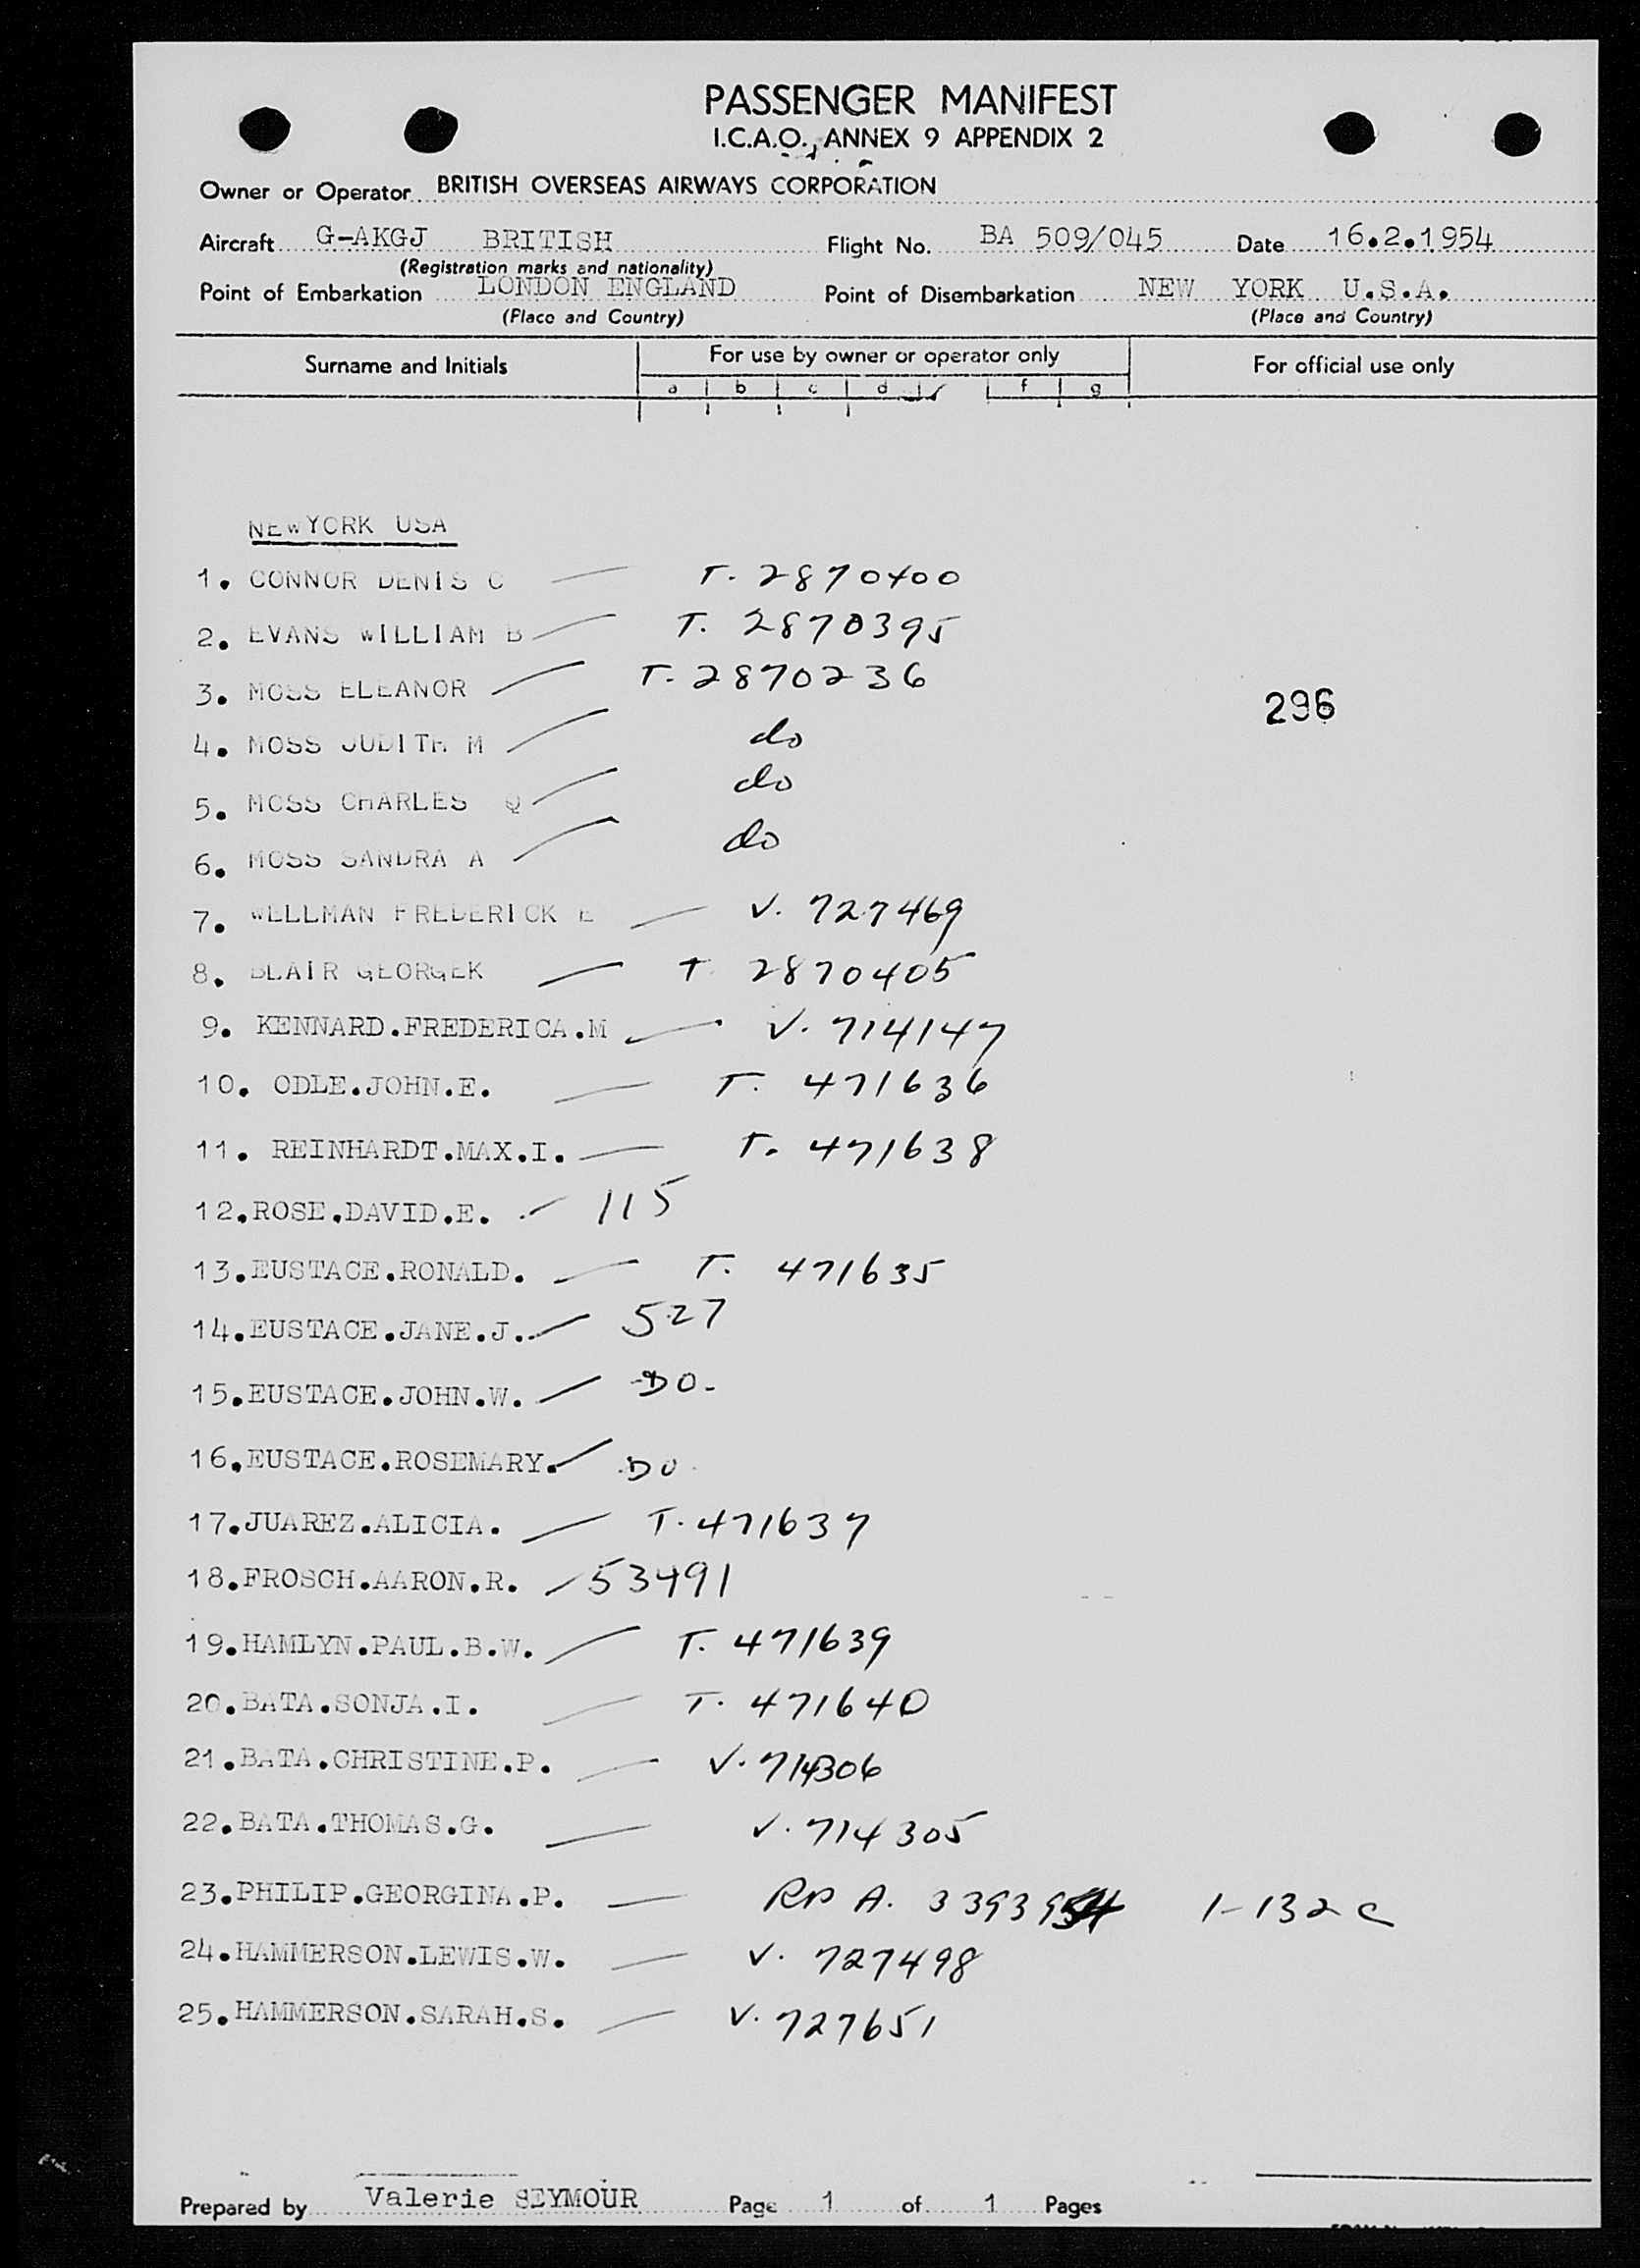 PASSENGER MANIFEST
I.C.A.O., ANNEX 9 APPENDIX 2
Owner or Operator BRITISH OVERSEAS AIRWAYS CORPORATION
Aircraft G-AKGJ BRITISH Flight No. BA 509/045 Date 16.2.1954
(Registration marks and nationality)
Point of Embarkation LONDON ENGLAND Point of Disembarkation NEW YORK U.S.A.
(Place and Country) (Place and Country)
Surname and Initials For use by owner or operator only For official use only
a b c d f g
NEWYORK USA
1. CONNOR DENIS C T. 2870400
2. EVANS WILLIAM B T. 2870395
3. MOSS ELEANOR T. 2870236
296
4. MOSS JUDITH M do
5. MOSS CHARLES Q do
6. MOSS SANDRA A do
7. WELLMAN FREDERICK E V. 727469
8. BLAIR GEORGEK T 2870405
9. KENNARD.FREDERICA.M V. 714147
10. ODLE.JOHN.E. T. 471636
11. REINHARDT.MAX.I. T. 471638
12.ROSE.DAVID.E. 115
13.EUSTACE.RONALD. T. 471635
14.EUSTACE.JANE.J. 527
15.EUSTACE.JOHN.W. DO.
16.EUSTACE.ROSEMARY. DO
17.JUAREZ.ALICIA. T. 471637
18.FROSCH.AARON.R. 53491
19.HAMLYN.PAUL.B.W. T. 471639
20.BATA.SONJA.I. T. 471640
21.BATA.CHRISTINE.P. V. 714306
22.BATA.THOMAS.G. V. 714305
23.PHILIP.GEORGINA.P. RP A. 3393954 1-132c
24.HAMMERSON.LEWIS.W. V. 727498
25.HAMMERSON.SARAH.S. V. 727651
Prepared by Valerie SEYMOUR Page 1 of 1 Pages